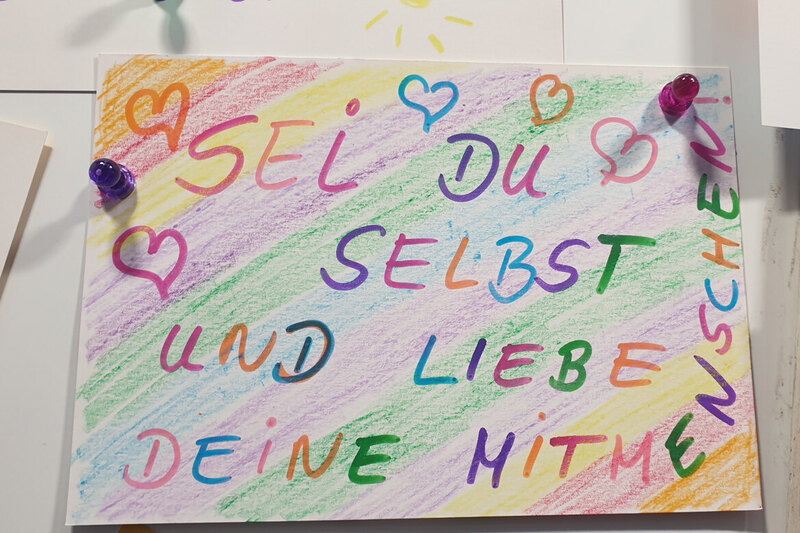 SEi DU
SELBST
UND LIEBE
DEiNE MiTMENSCHEN!